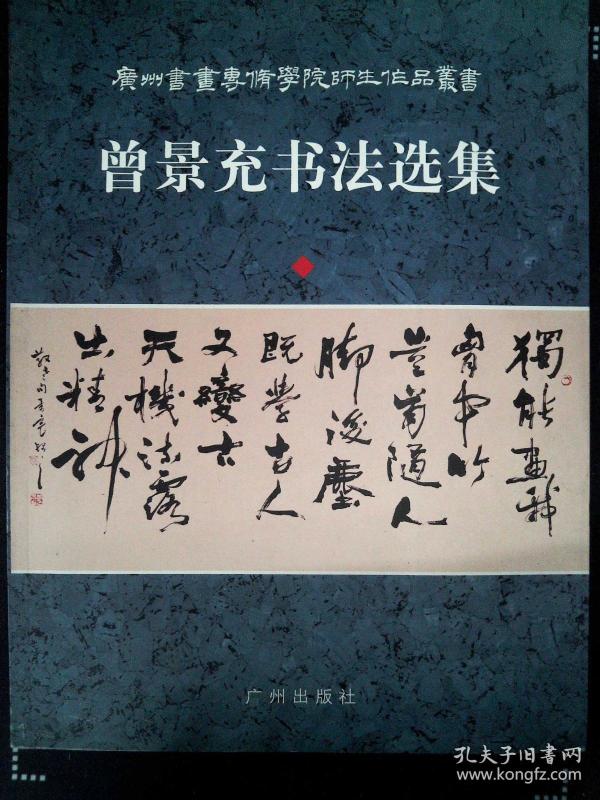 廣州書畫專脩學院師生作品叢書
曾景充书法选集
獨能畫我
胸中竹
豈肯隨人
脚後塵
既學古人
又變古
天機流露
出精神
广州出版社
孔夫子旧书网
www.kongfz.com